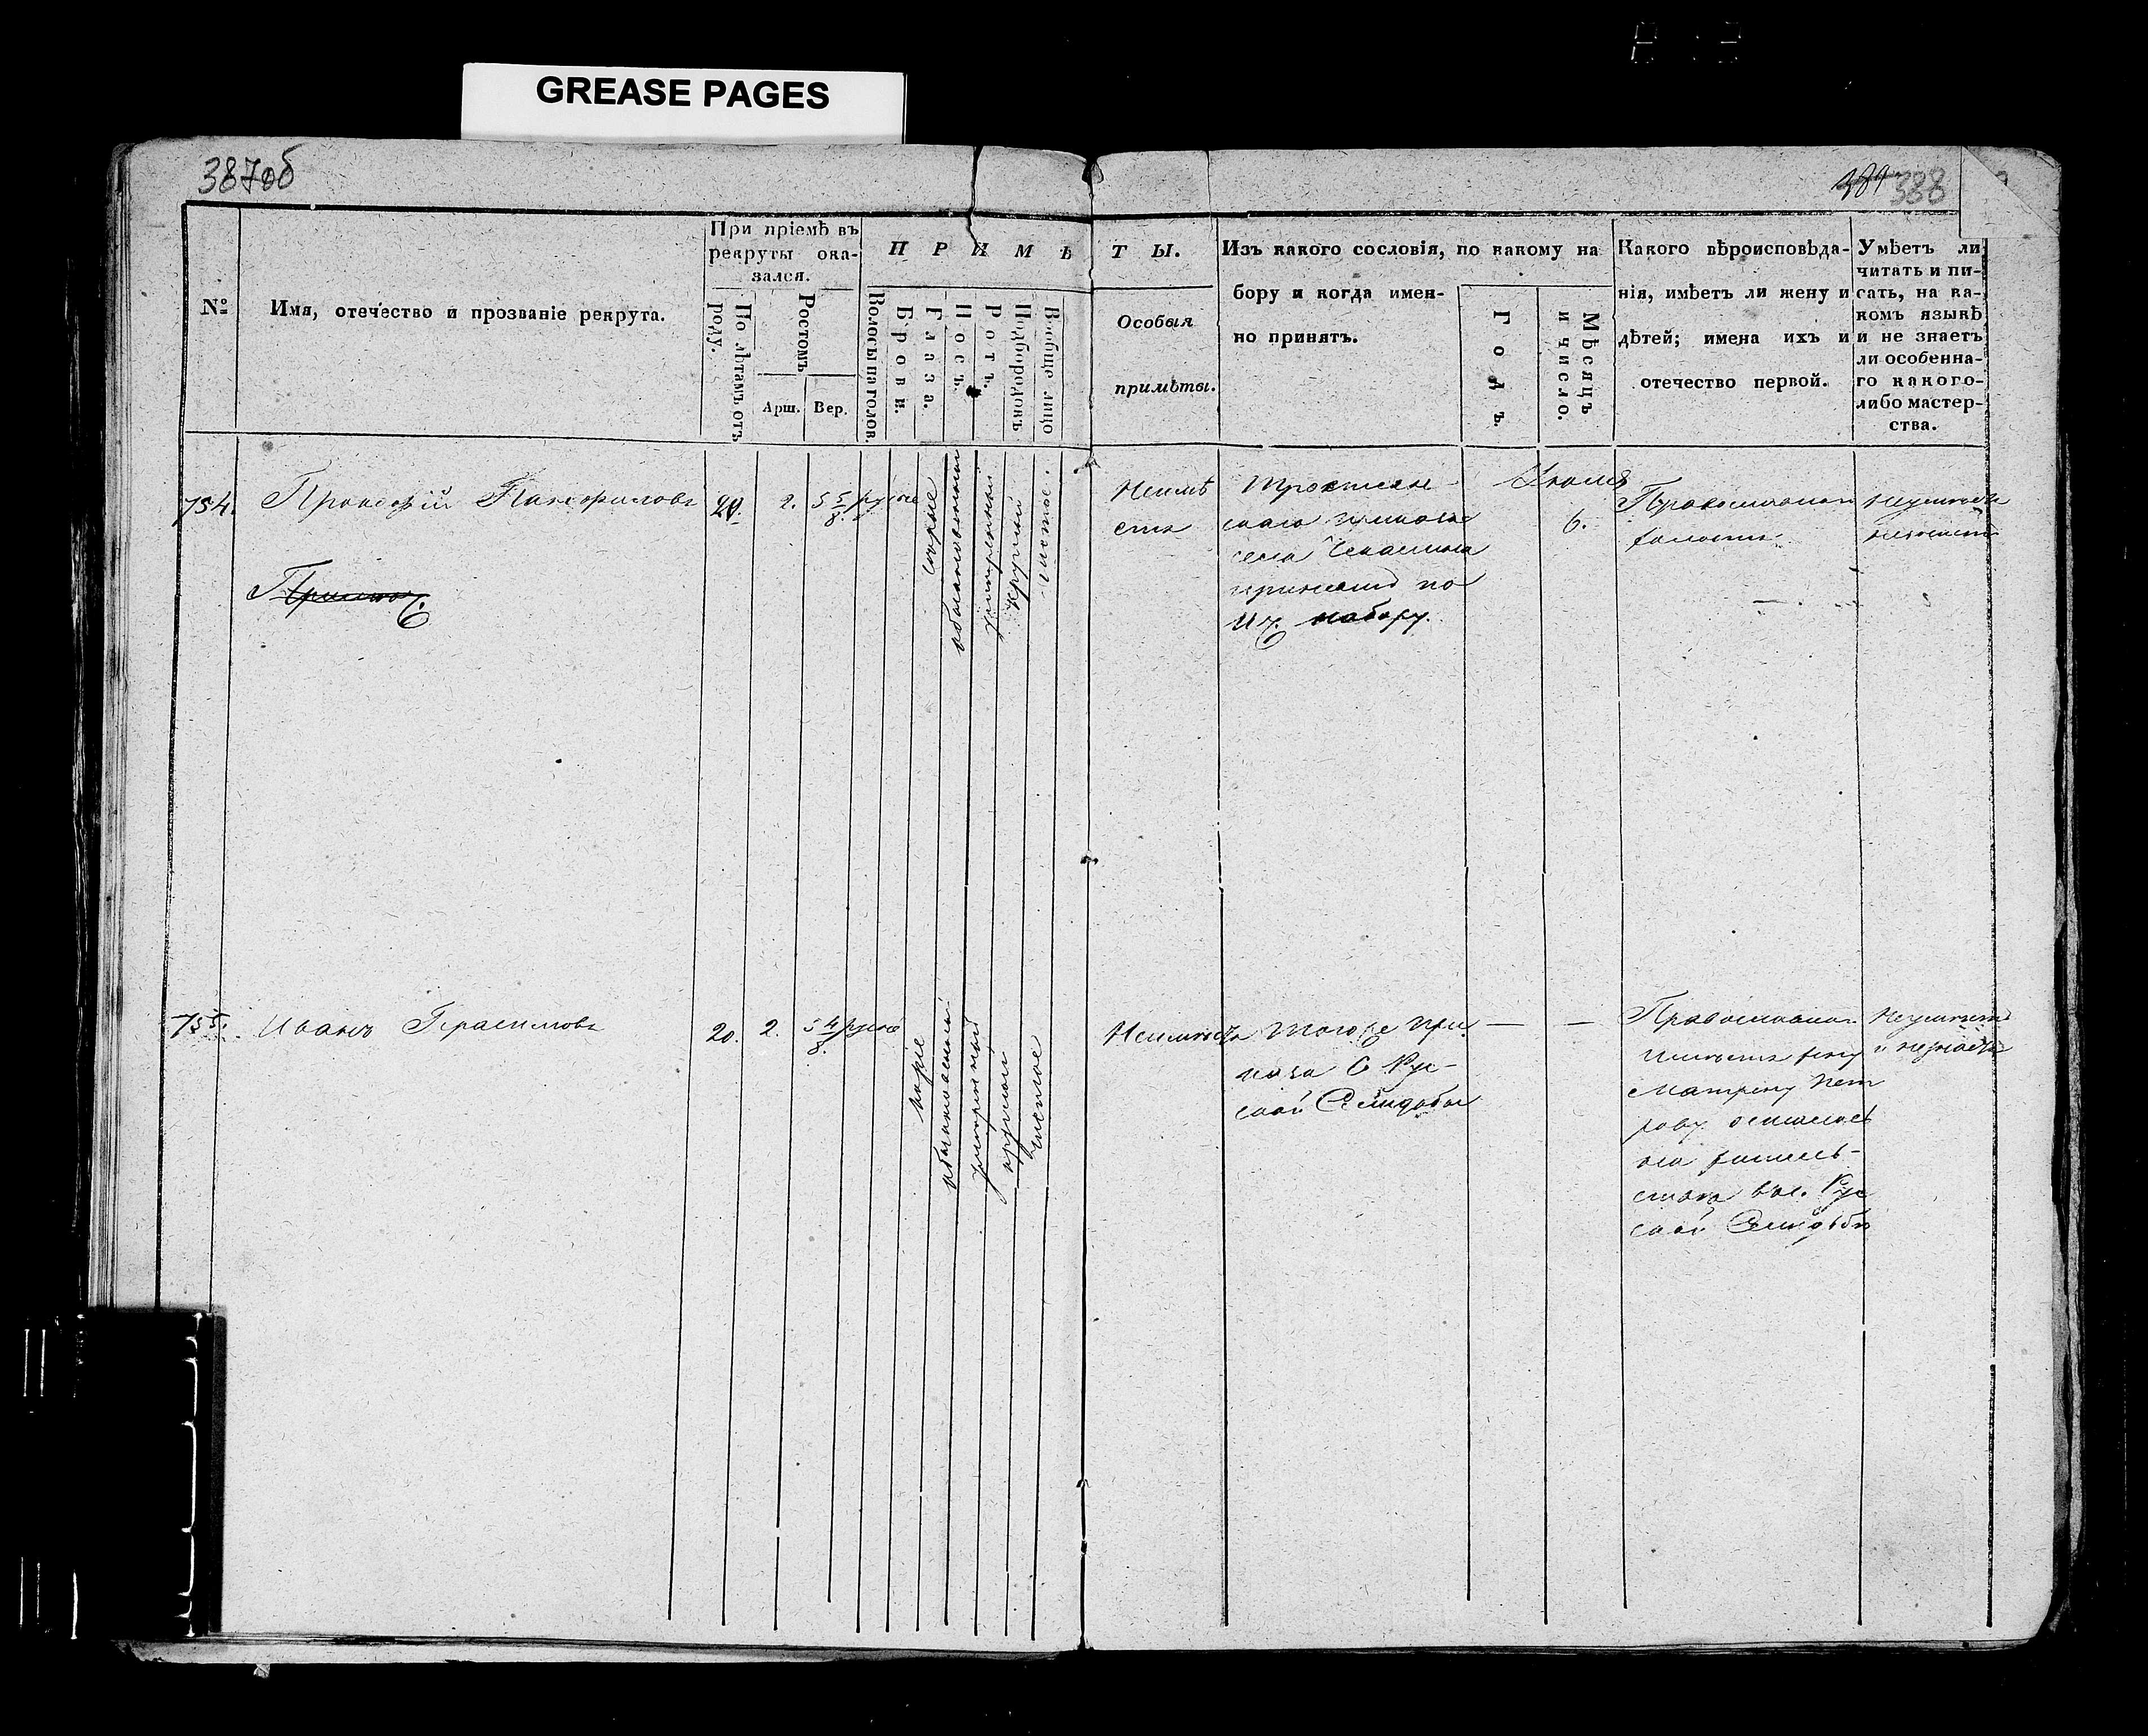 GREASE PAGES
387об
389 388
№
Имя, отечество и прозваніе рекрута.
При пріемѣ въ рекруты оказался.
По лѣтамъ отъ роду.
Ростомъ
Арш.
Вер.
ПРИМѢТЫ.
Волосы на голов.
Брови.
Глаза.
Носъ.
Ротъ.
Подбородокъ
Вообще лицо
Особыя
примѣты.
Изъ какого сословія, по какому на
бору и когда имен-
но принятъ.
Годъ.
Мѣсяцъ и число.
Какого вѣроисповѣда-
нія, имѣетъ ли жену и
дѣтей; имена ихъ и
отечество первой.
Умѣетъ ли
читать и пи-
сать, на ка-
комъ языкѣ
и не знаетъ
ли особенна-
го какого-
либо мастер-
ства.
754.
Прокофій Панфиловъ
20.
2.
5 5/8.
русые
сѣрые
обыкновенный
умѣренный
круглый
чистое.
Неимѣ
етъ
села
по
набору.
Іюля
6.
Православнаго
холостъ
Неумѣетъ
755.
Иванъ Герасимовъ
20.
2.
5 4/8.
русые
каріе
обыкновенный
умѣренный
круглый
чистое
Неимѣетъ
Тогоже при
каза С Рус-
кой
—
—
Православнаго
имѣетъ жену
Матрену Пет
рову осталась
на житель-
ствѣ въ с. Рус
кой
Неумѣетъ
и незнаетъ